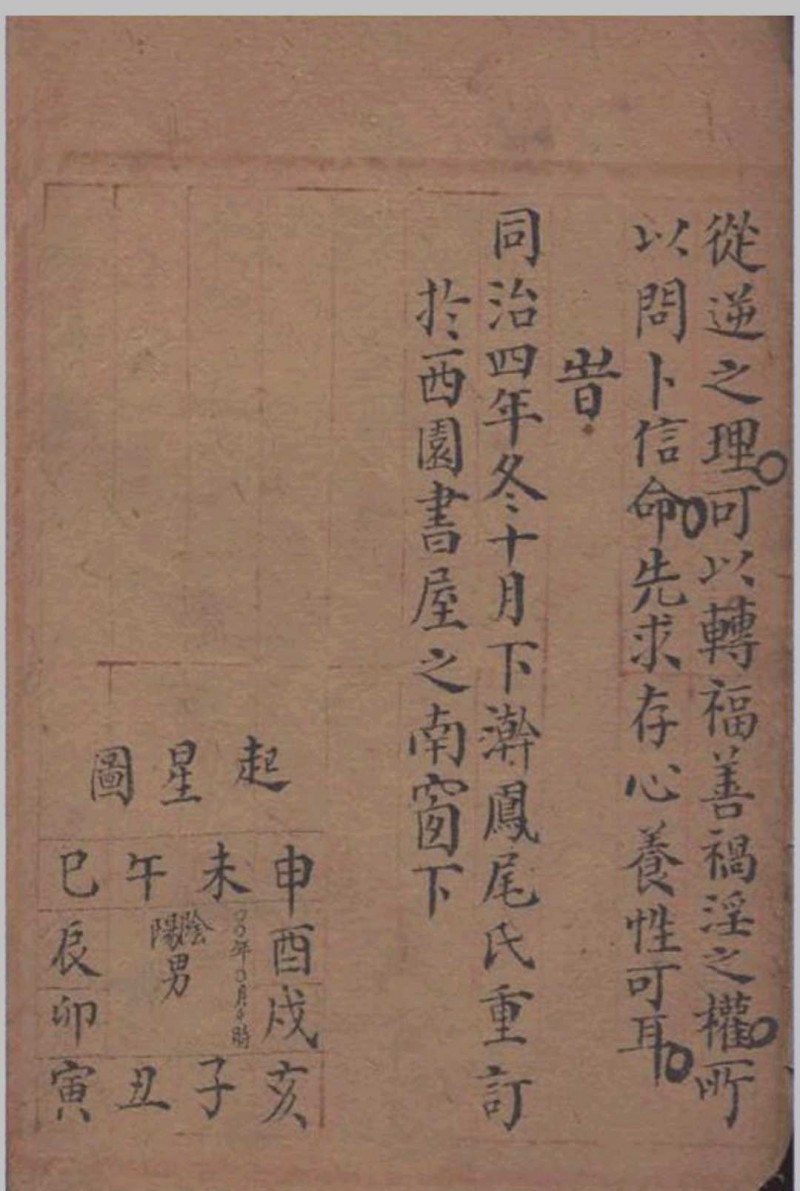 從逆之理可以轉福善禍淫之權所
以問卜信命先求存心養性可耳
旹
同治四年冬十月下澣鳳尾氏重訂
於西園書屋之南窗下
起星圖
申未午巳
酉辰
戌卯
亥子丑寅
〇〇年〇月〇時
陰陽男